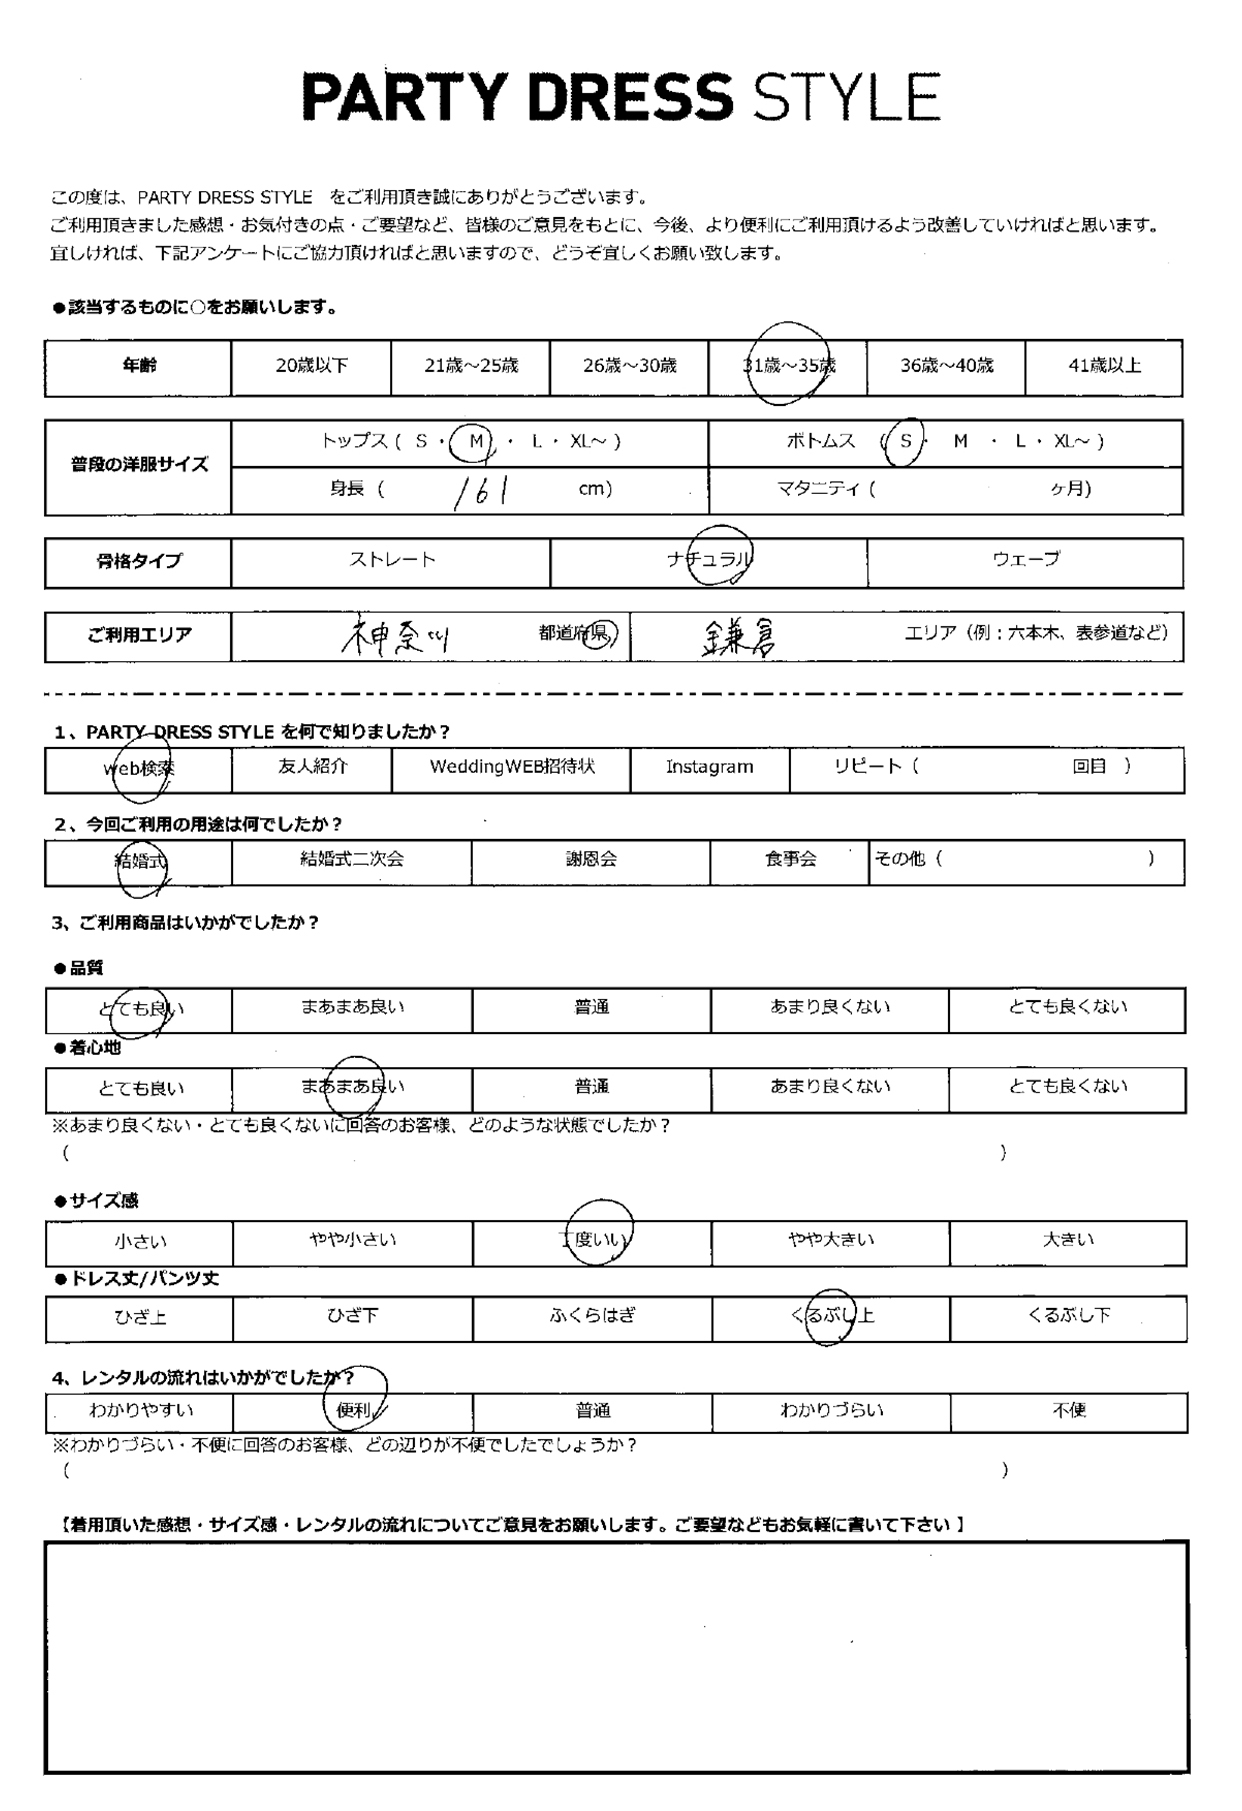 PARTY DRESS STYLE
この度は、PARTY DRESS STYLE　をご利用頂き誠にありがとうございます。
ご利用頂きました感想・お気付きの点・ご要望など、皆様のご意見をもとに、今後、より便利にご利用頂けるよう改善していければと思います。
宜しければ、下記アンケートにご協力頂ければと思いますので、どうぞ宜しくお願い致します。
●該当するものに○をお願いします。
年齢 20歳以下 21歳～25歳 26歳～30歳 31歳～35歳 36歳～40歳 41歳以上
普段の洋服サイズ トップス ( S ・ M ・ L ・ XL～ ) ボトムス ( S ・ M ・ L ・ XL～ )
身長 ( 161 cm) マタニティ ( ヶ月)
骨格タイプ ストレート ナチュラル ウェーブ
ご利用エリア 神奈川 都道府県 鎌倉 エリア（例：六本木、表参道など）
1、PARTY DRESS STYLE を何で知りましたか？
web検索 友人紹介 WeddingWEB招待状 Instagram リピート（ 回目 ）
2、今回ご利用の用途は何でしたか？
結婚式 結婚式二次会 謝恩会 食事会 その他（ ）
3、ご利用商品はいかがでしたか？
●品質
とても良い まあまあ良い 普通 あまり良くない とても良くない
●着心地
とても良い まあまあ良い 普通 あまり良くない とても良くない
※あまり良くない・とても良くないに回答のお客様、どのような状態でしたか？
（ ）
●サイズ感
小さい やや小さい 丁度いい やや大きい 大きい
●ドレス丈/パンツ丈
ひざ上 ひざ下 ふくらはぎ くるぶし上 くるぶし下
4、レンタルの流れはいかがでしたか？
わかりやすい 便利 普通 わかりづらい 不便
※わかりづらい・不便に回答のお客様、どの辺りが不便でしたでしょうか？
（ ）
【着用頂いた感想・サイズ感・レンタルの流れについてご意見をお願いします。ご要望などもお気軽に書いて下さい 】